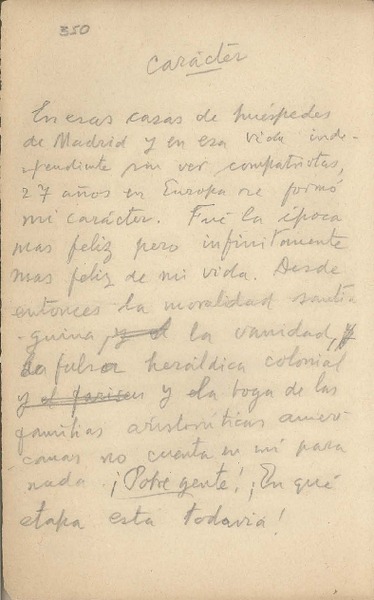 350
Carácter
En esas casas de huéspedes
de Madrid y en esa vida inde-
pendiente sin ver compatriotas,
27 años en Europa se formó
mi carácter. Fué la época
mas feliz pero infinitamente
mas feliz de mi vida. Desde
entonces la moralidad santia-
guina, y el la vanidad, y
la falsa heráldica colonial
y y la boga de las
familias aristocráticas ameri-
canas no cuenta en mi para
nada. ¡Pobre gente! ¡En qué
etapa esta todavia!